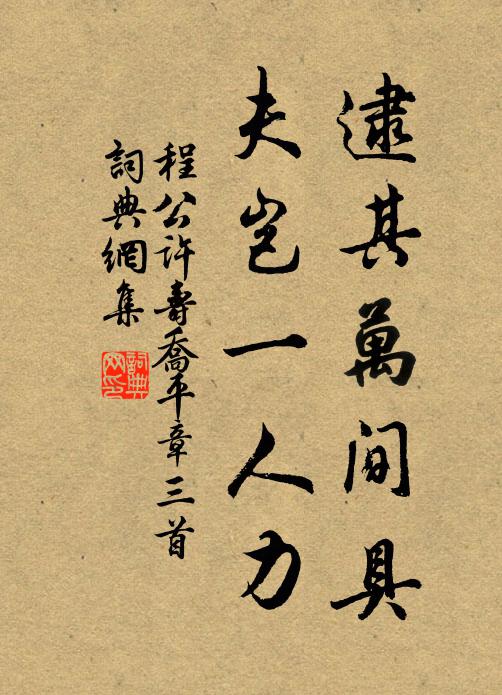 逮其萬間具
夫豈一人力
程公許壽喬平章三首
詞典網集
詞典网印